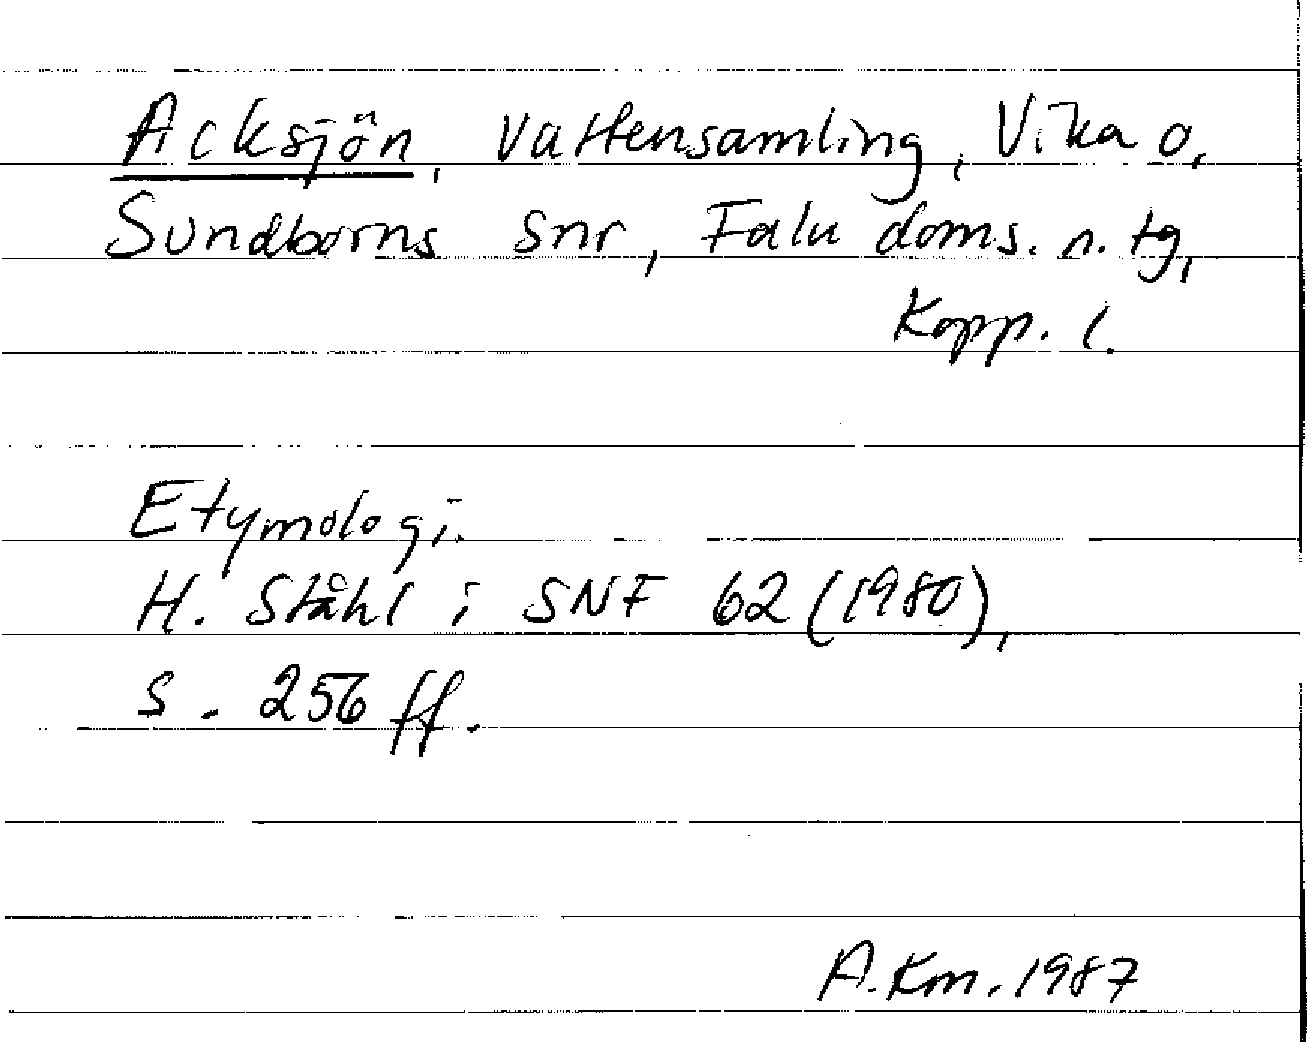 Acksjön, vattensamling, Vika o,
Sundborns snr, Falu doms. n. tg,
Kopp. l.
Etymologi.
H. Ståhl i SNF 62 (1980),
s. 256 ff.
A.Km. 1987